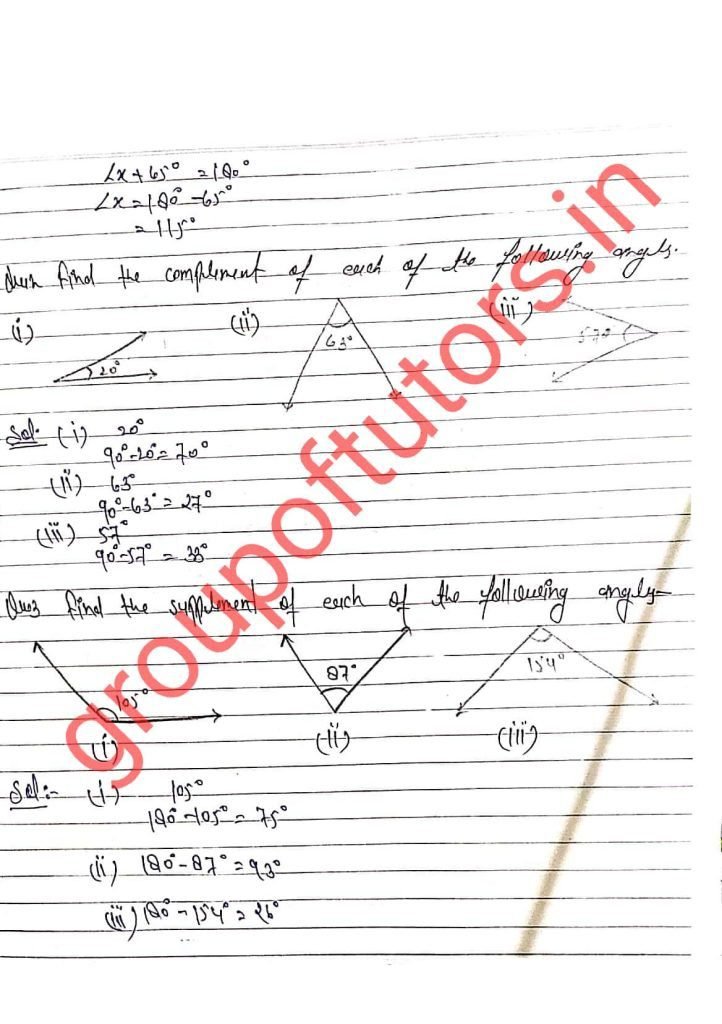 ∠x + 65° = 180°
∠x = 180° - 65°
= 115°
find the complement of each of the following angles.
(i) (ii) (iii)
20° 63° 57°
Sol: (i) 20°
90° - 20° = 70°
(ii) 63°
90° - 63° = 27°
(iii) 57°
90° - 57° = 33°
Ques find the supplement of each of the following angles-
105° 87° 154°
(i) (ii) (iii)
Sol:- (i) 105°
180° - 105° = 75°
(ii) 180° - 87° = 93°
(iii) 180° - 154° = 26°
groupoftutors.in